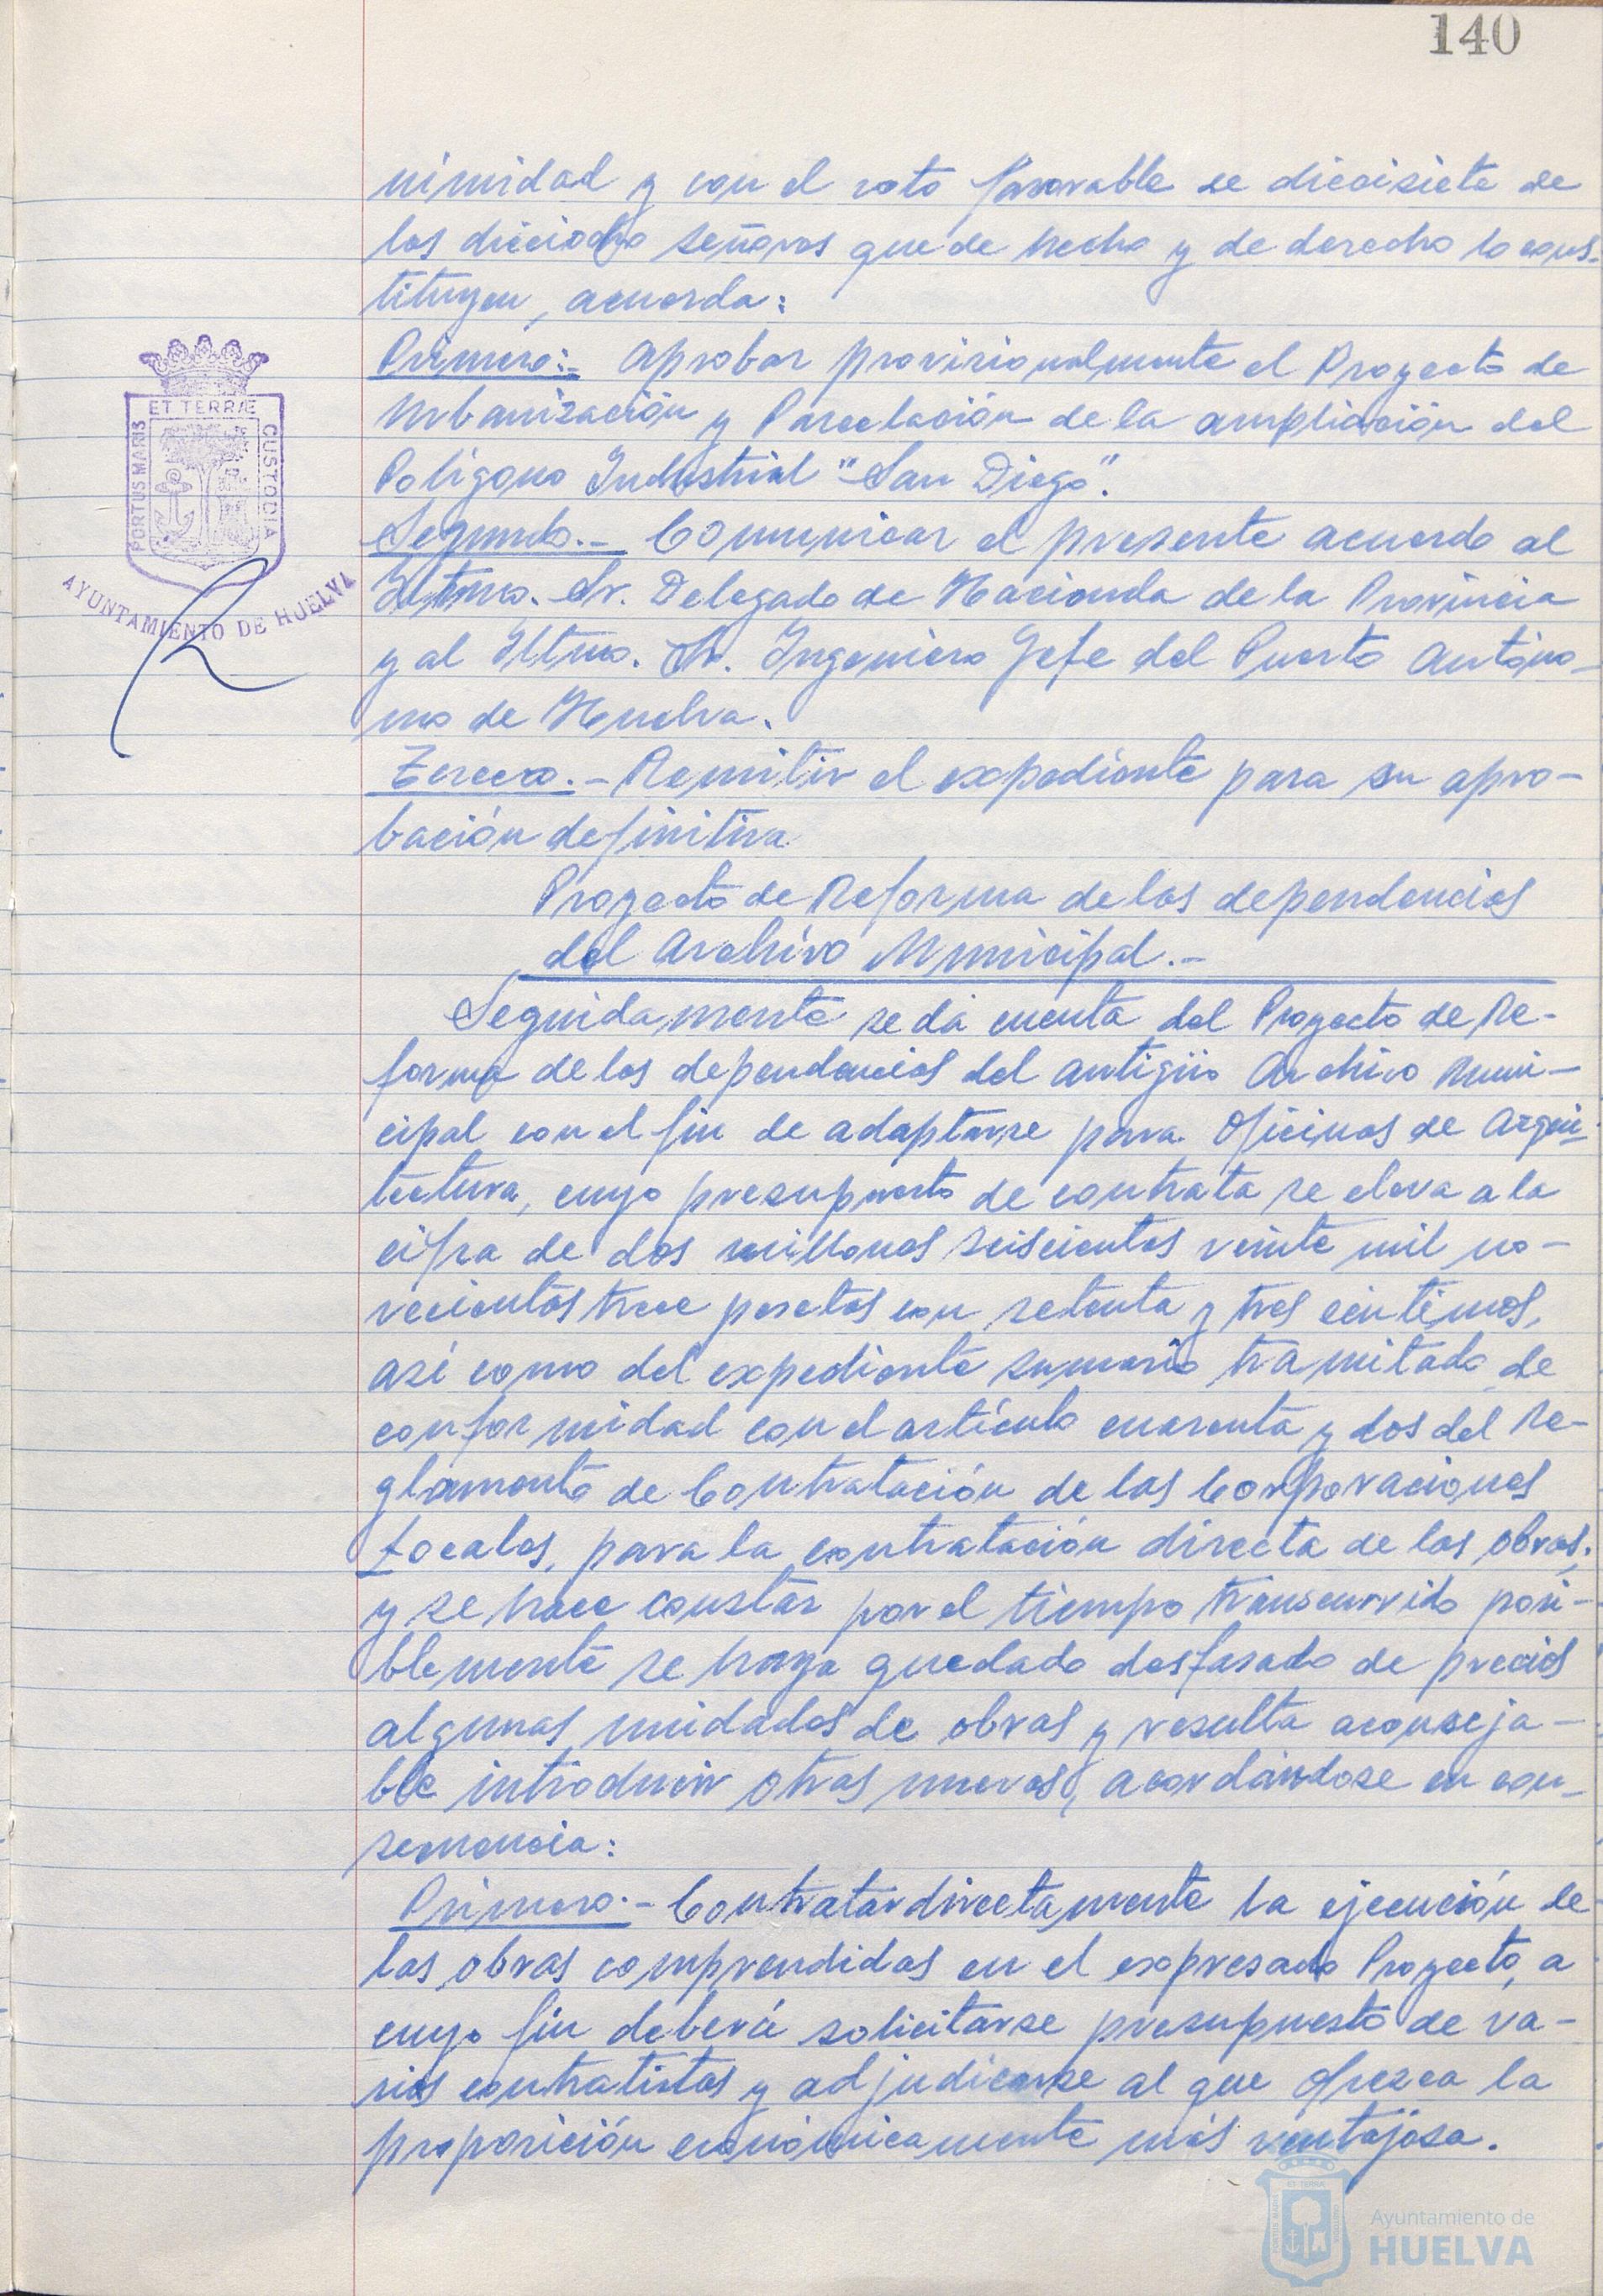 140
nimidad y con el voto favorable de diecisiete de
los dieciocho señores que de hecho y de derecho lo cons-
tituyen, acuerda:
Primero:- Aprobar provisionalmente el Proyecto de
Urbanización y Parcelación de la ampliación del
Polígono Industrial "San Diego".
Segundo.- Comunicar el presente acuerdo al
Iltmo. Sr. Delegado de Hacienda de la Provincia
y al Iltmo. Sr. Ingeniero Jefe del Puerto Autóno-
mo de Huelva.
Tercero.- Remitir el expediente para su apro-
bación definitiva
Proyecto de Reforma de las dependencias
del Archivo Municipal.-
Seguidamente se dá cuenta del Proyecto de Re-
forma de las dependencias del antigüo Archivo Muni-
cipal con el fin de adaptarse para Oficinas de Arqui-
tectura, cuyo presupuesto de contrata se eleva a la
cifra de dos millones seiscientas veinte mil no-
vecientas trece pesetas con setenta y tres céntimos,
así como del expediente sumario tramitado de
conformidad con el artículo cuarenta y dos del Re-
glamento de Contratación de las Corporaciones
Locales, para la contratación directa de las obras,
y se hace constar por el tiempo transcurrido posi-
blemente se haya quedado desfasado de precios
algunas unidades de obras y resulta aconseja-
ble introducir otras nuevas, acordándose en con-
secuencia:
Primero.- Contratar directamente la ejecución de
las obras comprendidas en el expresado Proyecto, a
cuyo fin deberá solicitarse presupuesto de va-
rios contratistas y adjudicarse al que ofrezca la
proposición económicamente más ventajosa.
PORTUS MARIS ET TERRÆ CUSTODIA
AYUNTAMIENTO DE HUELVA
Ayuntamiento de
HUELVA